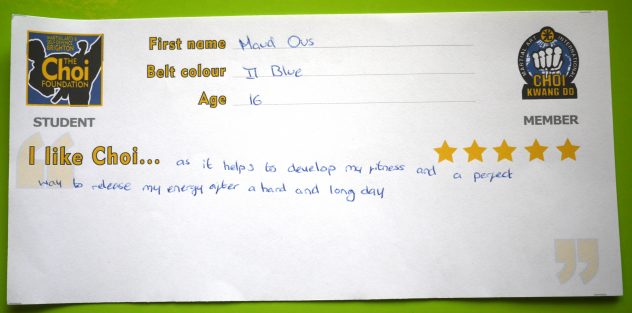 MARTIAL ARTS & SELF DEFENCE BRIGHTON
THE
Choi
FOUNDATION
STUDENT
First name Mavi Ous
Belt colour II Blue
Age 16
MARTIAL ART INTERNATIONAL
CHOI
KWANG DO
MEMBER
I like Choi... as it helps to develop my fitness and a perfect
way to release my energy after a hard and long day